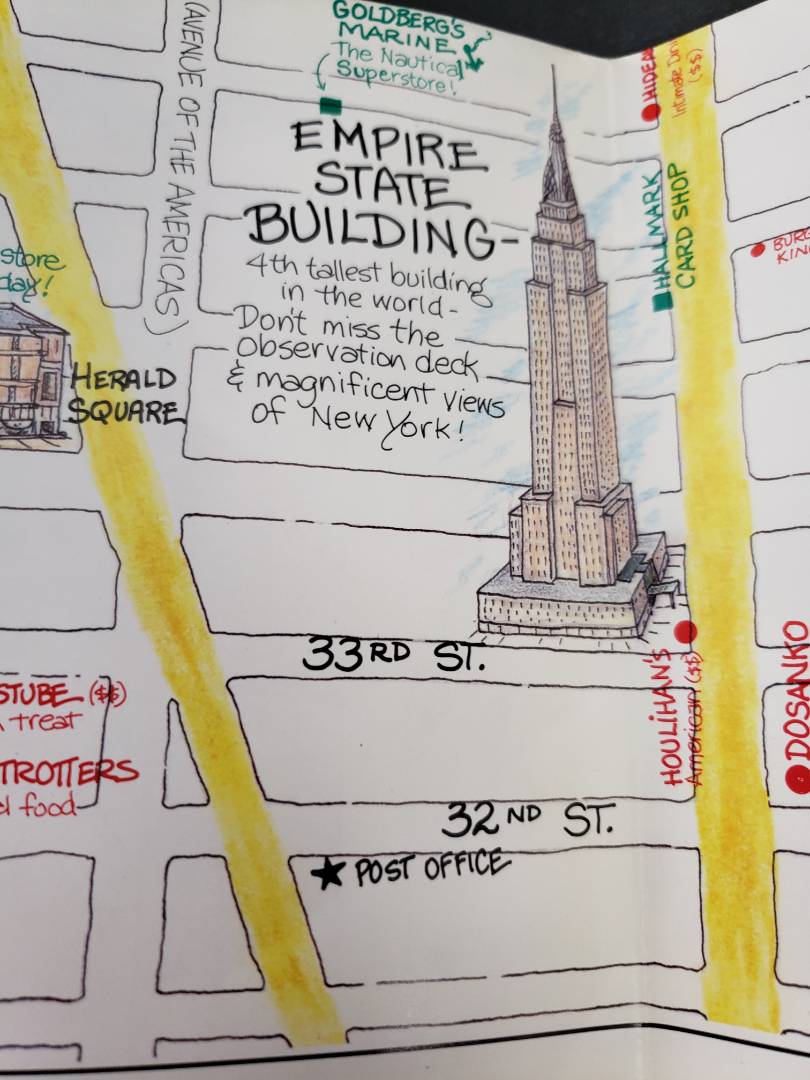 GOLDBERG'S
MARINE
The Nautical
Superstore!
(AVENUE OF THE AMERICAS)
HIDEA
Intimate Din
($$)
EMPIRE
STATE
BUILDING-
4th tallest building
in the world-
Don't miss the
observation deck
& magnificent views
of New York!
HALLMARK
CARD SHOP
BURG
KING
store
day!
HERALD
SQUARE
33RD ST.
STUBE ($$)
treat
TROTTERS
food
HOULIHAN'S
American ($$)
DOSANKO
32ND ST.
★ POST OFFICE